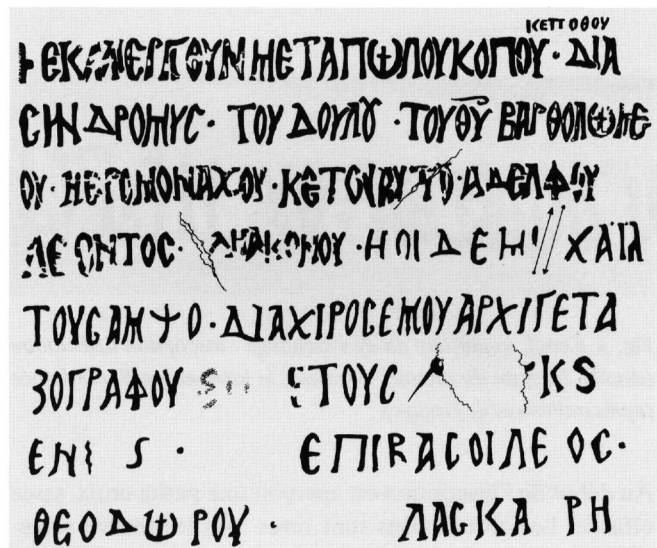 ΚΕΤΤΟΘΟΥ
ΜΕΤΑΠѠΛΟΥΚΟΠΟΥ· ΔΙΑ
CΗΝΔΡΟΜΥC· ΤΟΥ ΔΟΥΛȢ· ΤΟΥ ΘΥ ΒΑΡΘΟΛѠΜΕ
ΟΥ· ΗΕΡΟΜΟΝΑΧΟΥ· ΚΕ ΤΟΥ ΑΔΕΛΦΟΥ
ΛΕΟΝΤΟC· ΔΗΑΚΟΝΟΥ· ΧΑΪΛ
ΤΟΥCΑΜΨΟ· ΔΙΑΧΙΡΟCΕΜΟΥΑΡΧΙΓΕΤΑ
ΖΟΓΡΑΦΟΥ ΕΤΟΥC ΚS
ΕΝΙ S · ΕΠΙΒΑCΟΙΛΕΟC·
ΘΕΟΔѠΡΟΥ· ΛΑCΚΑΡΗ